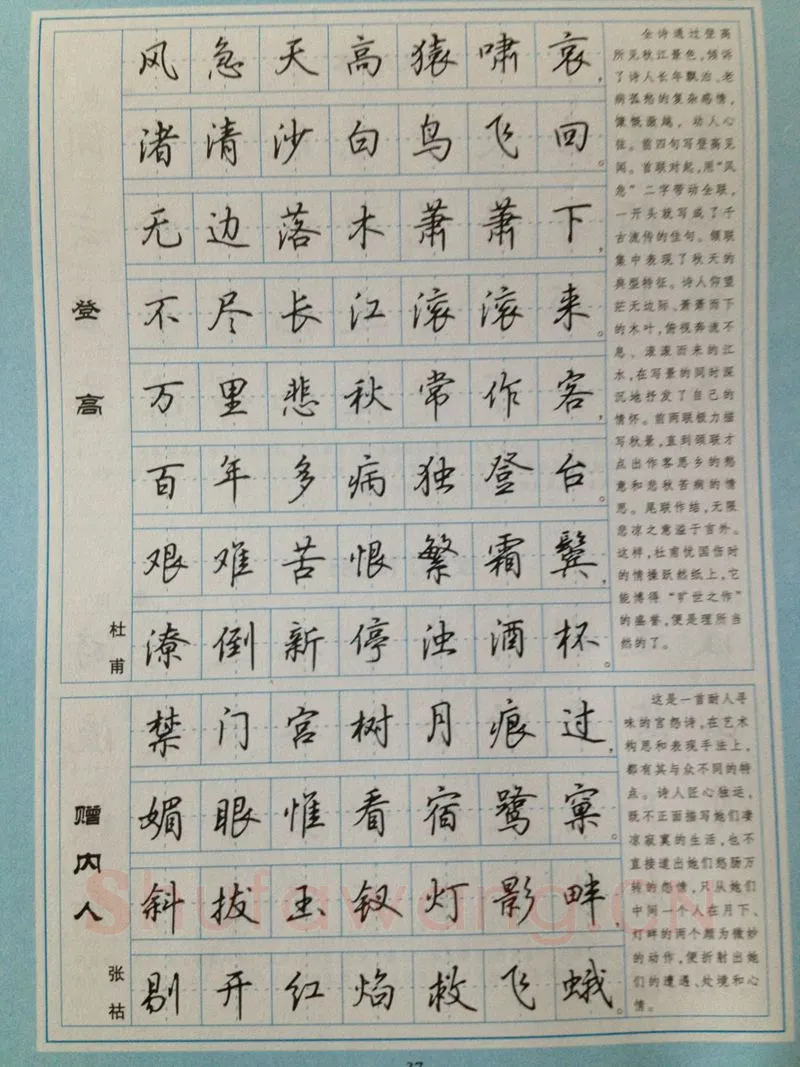 登高
杜甫
风急天高猿啸哀，
渚清沙白鸟飞回。
无边落木萧萧下，
不尽长江滚滚来。
万里悲秋常作客，
百年多病独登台。
艰难苦恨繁霜鬓，
潦倒新停浊酒杯。
全诗通过登高
所见秋江景色，倾诉
了诗人长年飘泊、老
病孤愁的复杂感情，
慷慨激越，动人心
弦。前四句写登高见
闻。首联对起，用“风
急”二字带动全联，
一开头就写成了千
古流传的佳句。颔联
集中表现了秋天的
典型特征。诗人仰望
茫无边际、萧萧而下
的木叶，俯视奔流不
息、滚滚而来的江
水，在写景的同时深
沉地抒发了自己的
情怀。前两联极力描
写秋景，直到颈联才
点出作客思乡的愁
意和悲秋苦病的情
思。尾联作结，无限
悲凉之意溢于言外。
这样，杜甫忧国伤时
的情操跃然纸上，它
能博得“旷世之作”
的盛誉，便是理所当
然的了。
赠内人
张祜
禁门宫树月痕过，
媚眼惟看宿鹭窠。
斜拔玉钗灯影畔，
剔开红焰救飞蛾。
这是一首耐人寻
味的宫怨诗，在艺术
构思和表现手法上，
都有其与众不同的特
点。诗人匠心独运，
既不正面描写她们凄
凉寂寞的生活，也不
直接道出她们愁肠万
转的怨情，只从她们
中间一个人在月下、
灯畔的两个颇为微妙
的动作，便折射出她
们的遭遇、处境和心
情。
Shufawang.CN
37